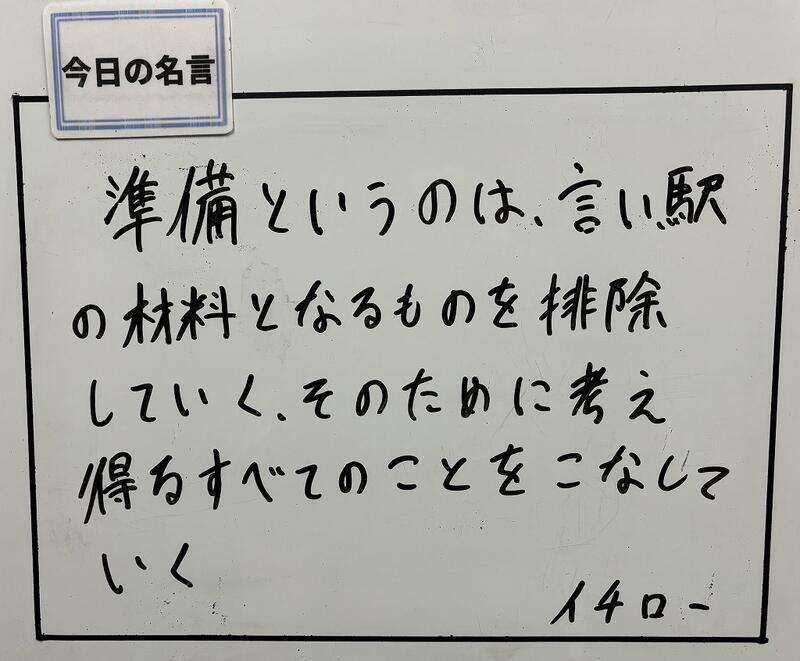 今日の名言
準備というのは、言い駅
の材料となるものを排除
していく、そのために考え
得るすべてのことをこなして
いく
イチロー